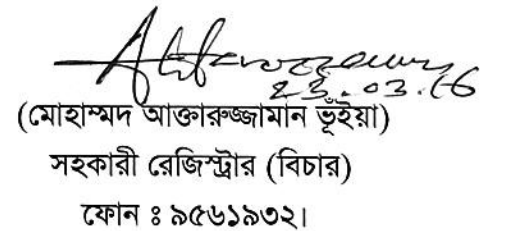 23.03.16
(মোহাম্মদ আক্তারুজ্জামান ভূঁইয়া)
সহকারী রেজিস্ট্রার (বিচার)
ফোন ঃ ৯৫৬১৯৩২।